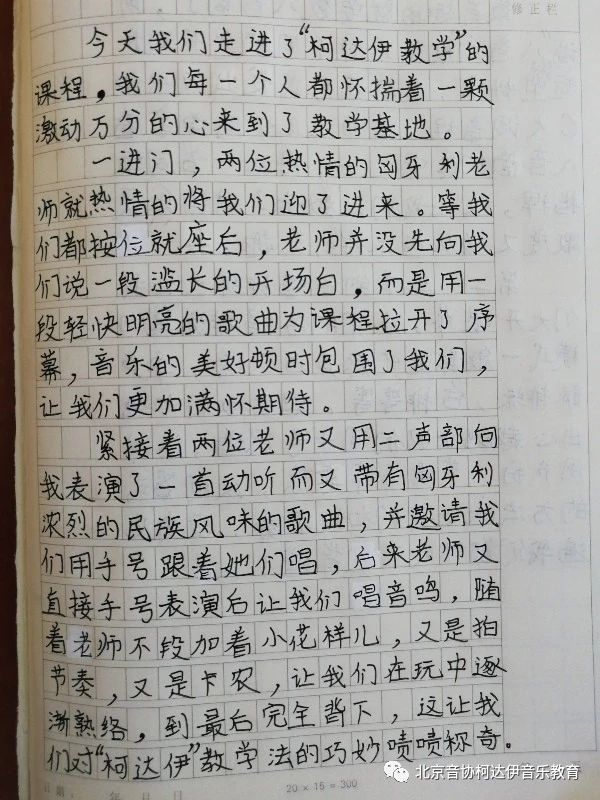 修正栏
今天我们走进了“柯达伊教学”的
课程，我们每一个人都怀揣着一颗
激动万分的心来到了教学基地。
一进门，两位热情的匈牙利老
师就热情的将我们迎了进来。等我
们都按位就座后，老师并没先向我
们说一段滥长的开场白，而是用一
段轻快明亮的歌曲为课程拉开了序
幕，音乐的美好顿时包围了我们，
让我们更加满怀期待。
紧接着两位老师又用二声部向
我表演了一首动听而又带有匈牙利
浓烈的民族风味的歌曲，并邀请我
们用手号跟着她们唱，后来老师又
直接手号表演后让我们唱音鸣，随
着老师不段加着小花样儿，又是拍
节奏，又是卡农，让我们在玩中逐
渐熟络，到最后完全背下，这让我
们对“柯达伊”教学法的巧妙啧啧称奇。
北京音协柯达伊音乐教育
日期： 年 月 日
20×15=300